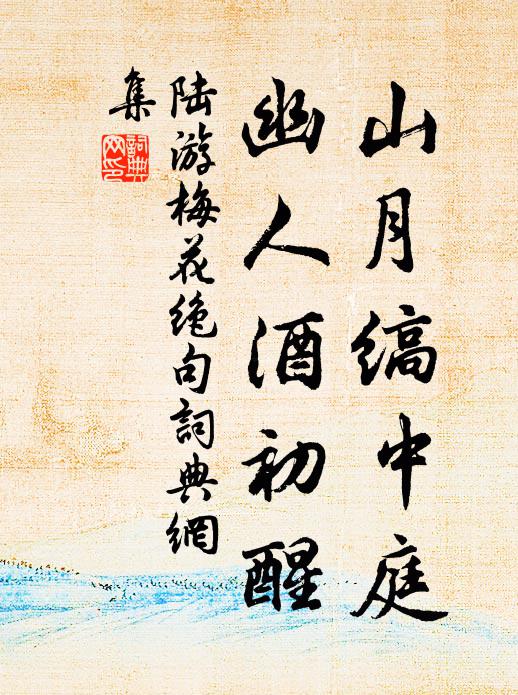 山月縞中庭
幽人酒初醒
陆游梅花绝句詞典網
集
詞典
网印